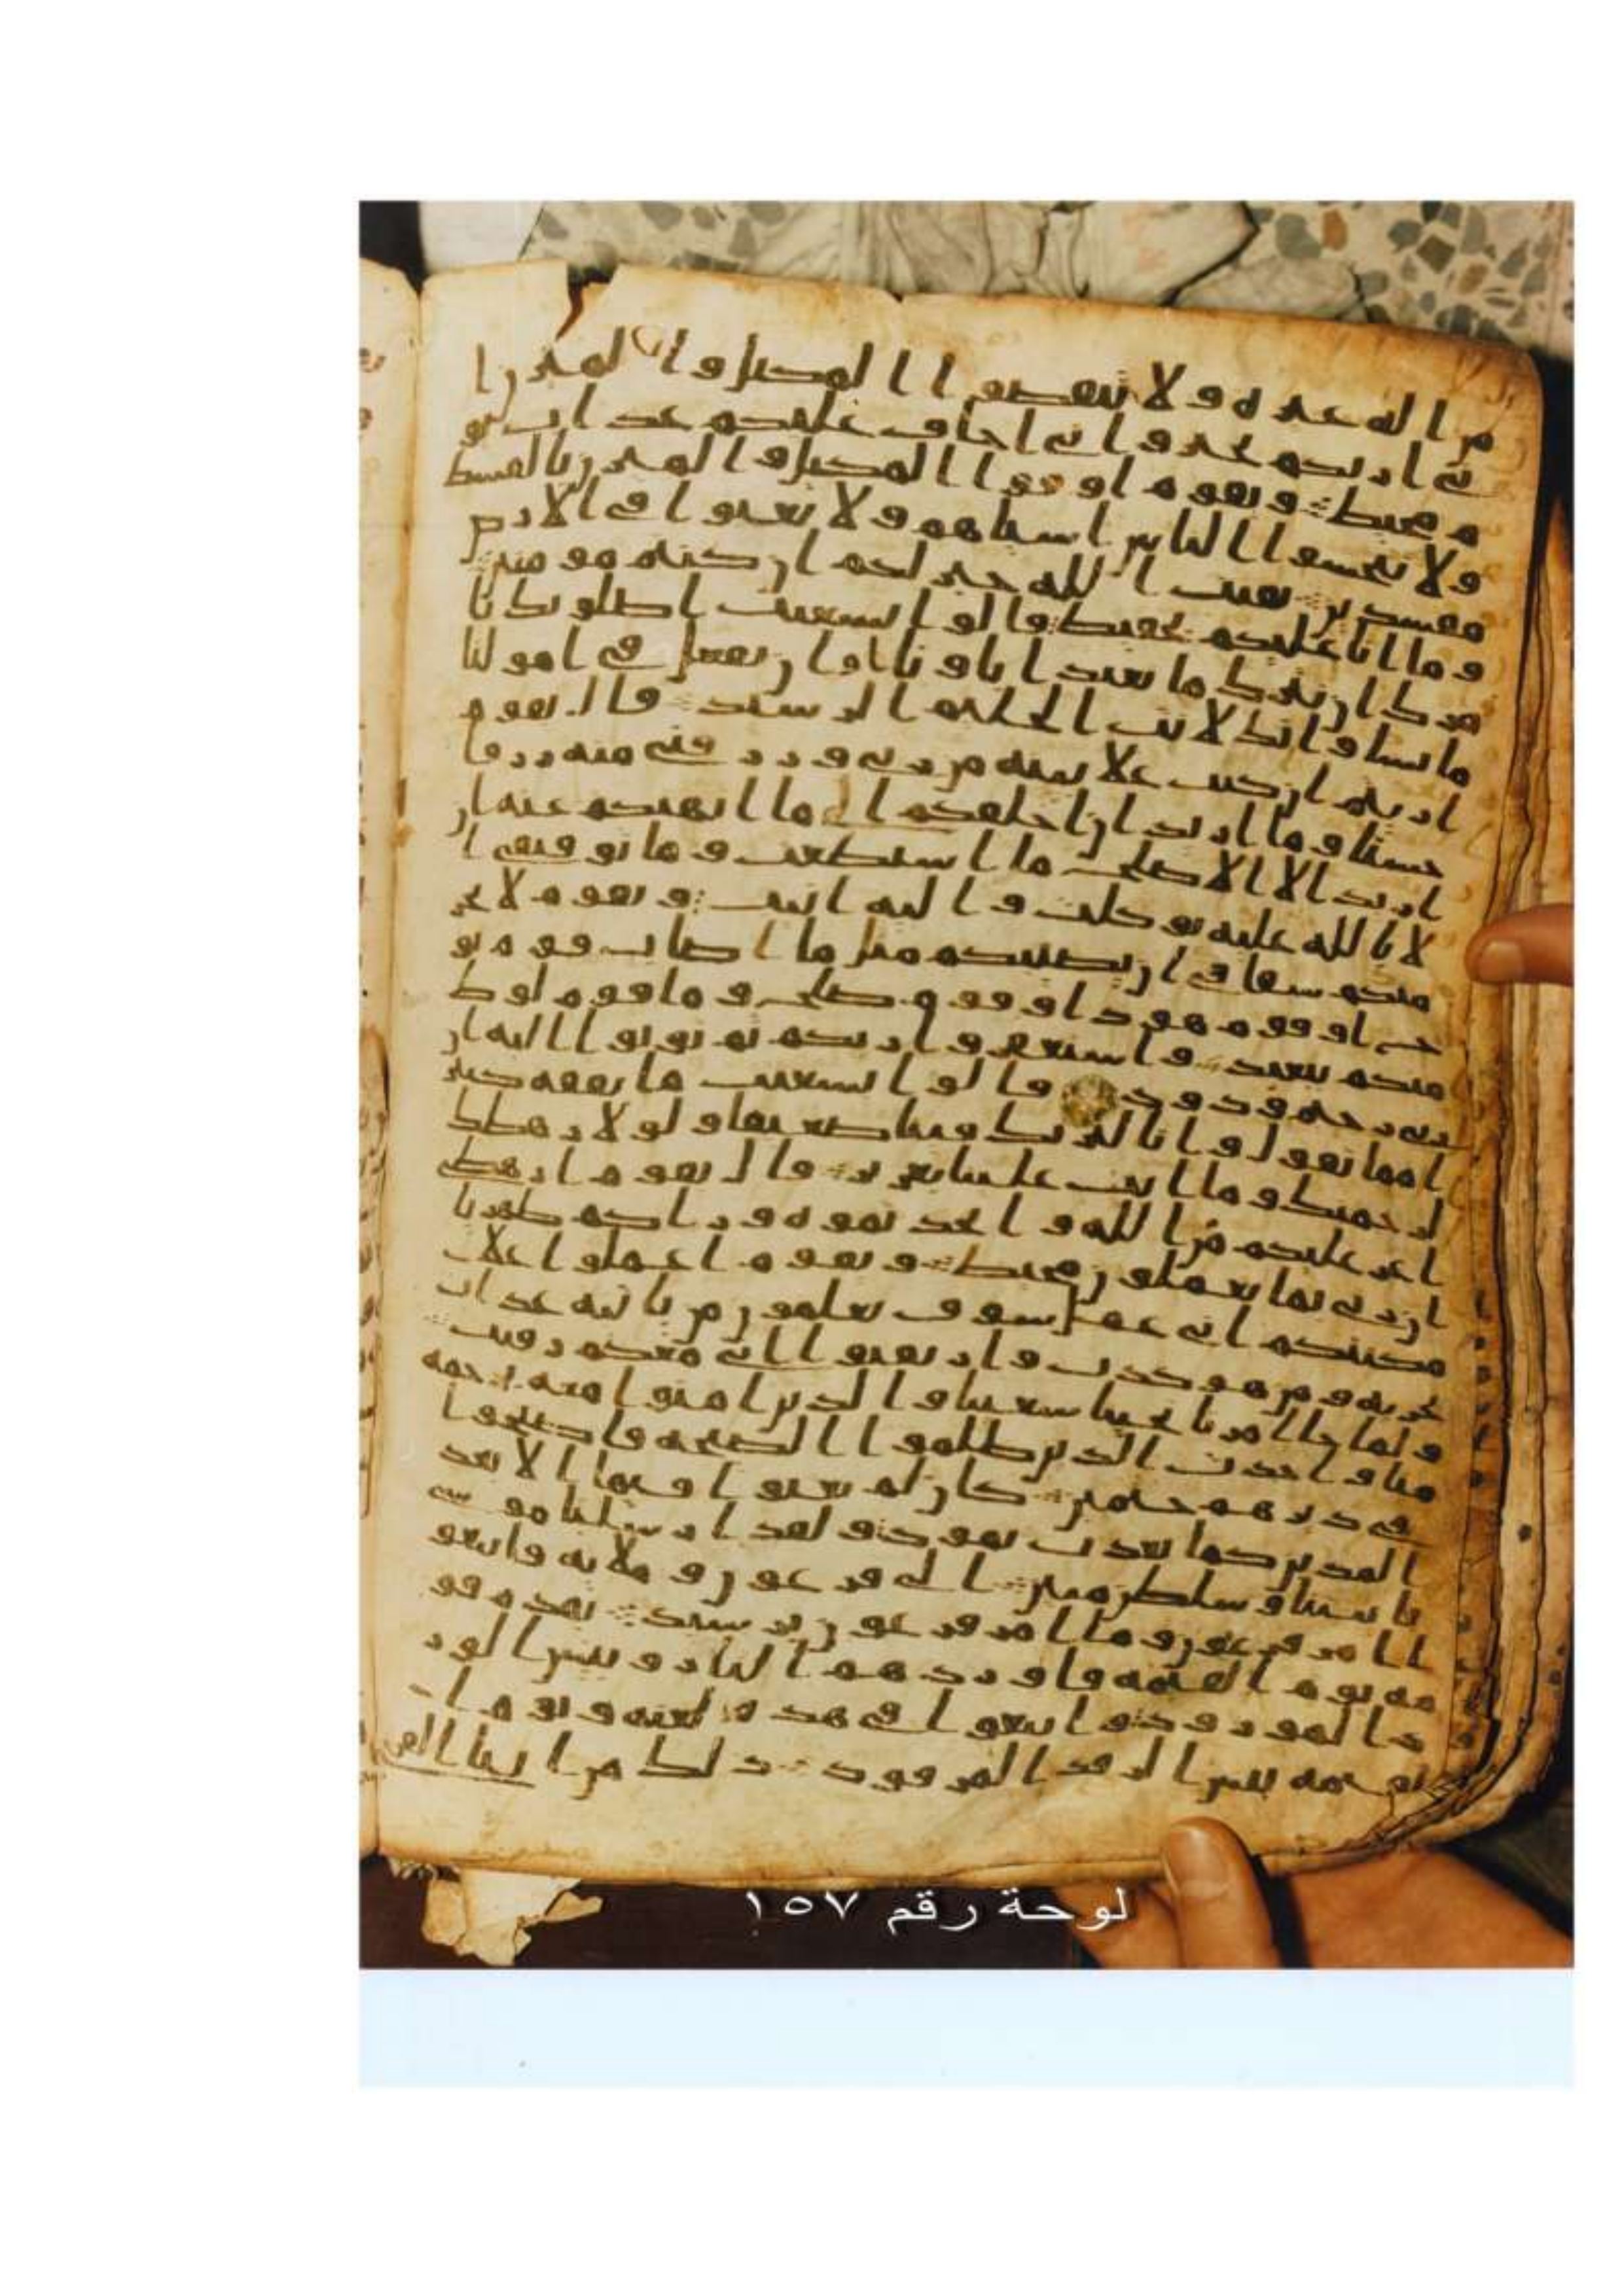 من اله غيره ولا تنقصوا المكيل والميزن ا
ني اريكم بخير واني اخاف عليكم عذاب يو
م محيط ويقوم اوفوا المكيل والميزن بالقسط
ولا تبخسوا الناس اشياهم ولا تعثوا في الارض
مفسدين بقيت الله خير لكم ان كنتم مومنين
وما انا عليكم بحفيظ قالوا يشعيب اصلوتك تا
مرك ان نترك ما يعبد اباونا او ان نفعل في امولنا
ما نشا وانك لانت الحليم الرشيد قال يقوم
اريتم ان كنت علا بينه من ربي ورزقني منه رزقا
حسنا وما اريد ان اخلفكم الى ما انهيكم عنه ان
اريد الا الاصلح ما استطعت وما توفيقي ا
لا بالله عليه توكلت واليه انيب ويقوم لا يجر
منكم شقاقي ان يصيبكم مثل ما اصاب قوم نو
ح او قوم هود او قوم صلح وما قوم لوط
منكم ببعيد واستغفروا ربكم ثم توبوا اليه ان
ربي رحيم ودود قالوا يشعيب ما نفقه كثير
ا مما تقول وانا لنريك فينا ضعيفا ولولا رهطك
لرجمنك وما انت علينا بعزيز قال يقوم ارهطي
اعز عليكم من الله واتخذتموه وراكم ظهريا
ان ربي بما تعملون محيط ويقوم اعملوا علا
مكنتكم اني عمل سوف تعلمون من ياتيه عذاب
يخزيه ومن هو كذب وارتقبوا اني معكم رقيب
ولما جا امرنا نجينا شعيبا والذين امنوا معه برحمه
منا واخذت الذين ظلموا الصيحه فاصبحوا
في ديرهم جثمين كان لم يغنوا فيها الا بعد
المدين كما بعدت ثمود ولقد ارسلنا موسى
بايتنا وسلطن مبين الى فرعون وملايه فاتبعو
ا امر فرعون وما امر فرعون برشيد يقدم قو
مه يوم القيمه فاوردهم النار وبيس الور
د المورود واتبعوا في هذه لعنه ويوم ا
لقيمه بيس الرفد المرفود ذلك من انبا القر
لوحة رقم ١٥٧